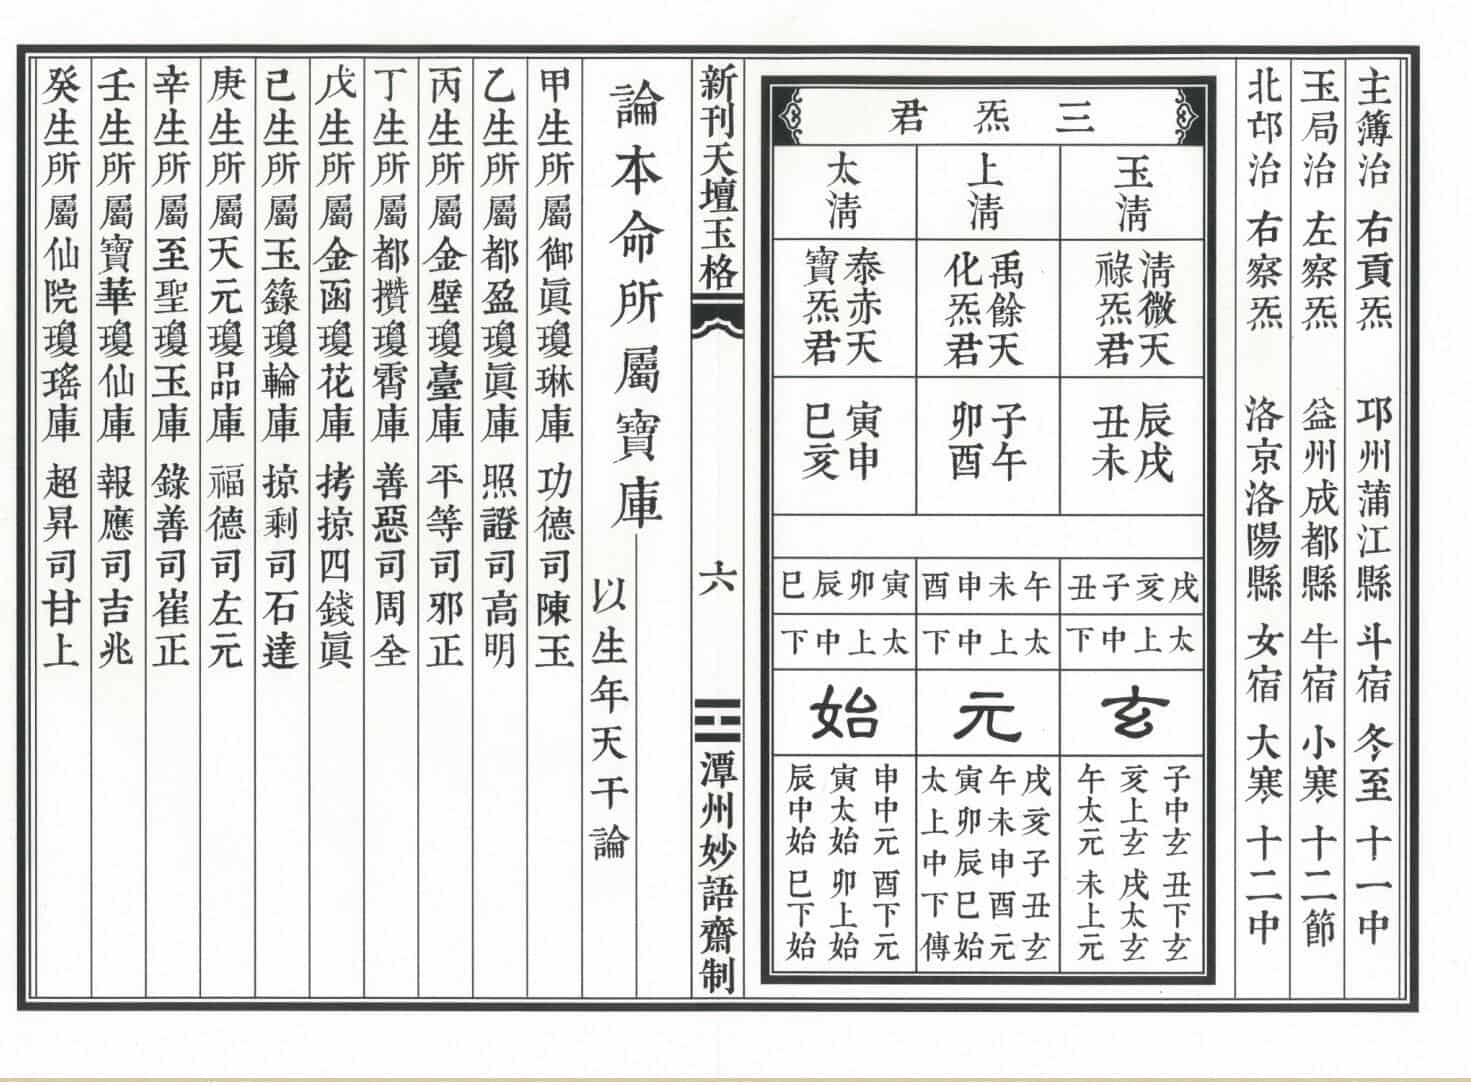 主簿治 右貢炁 邛州蒲江縣 斗宿 冬至 十一中
玉局治 左察炁 益州成都縣 牛宿 小寒 十二節
北邙治 右察炁 洛京洛陽縣 女宿 大寒 十二中
三炁君
玉淸 上淸 太淸
淸微天
祿炁君
禹餘天
化炁君
泰赤天
寶炁君
辰戌
丑未
子午
卯酉
寅申
巳亥
戌亥子丑 午未申酉 寅卯辰巳
太上中下 太上中下 太上中下
玄 元 始
子中玄 丑下玄
亥上玄 戌太玄
午太元 未上元
戌亥子丑玄
午未申酉元
寅卯辰巳始
太上中下傳
申中元 酉下元
寅太始 卯上始
辰中始 巳下始
新刊天壇玉格
六
潭州妙語齋制
論本命所屬寶庫
以生年天干論
甲生所屬御眞瓊琳庫 功德司陳玉
乙生所屬都盈瓊眞庫 照證司高明
丙生所屬金壁瓊臺庫 平等司邪正
丁生所屬都攢瓊霄庫 善惡司周全
戊生所屬金函瓊花庫 拷掠四錢眞
己生所屬玉籙瓊輪庫 掠剩司石達
庚生所屬天元瓊品庫 福德司左元
辛生所屬至聖瓊玉庫 錄善司崔正
壬生所屬寶華瓊仙庫 報應司吉兆
癸生所屬仙院瓊瑤庫 超昇司甘上